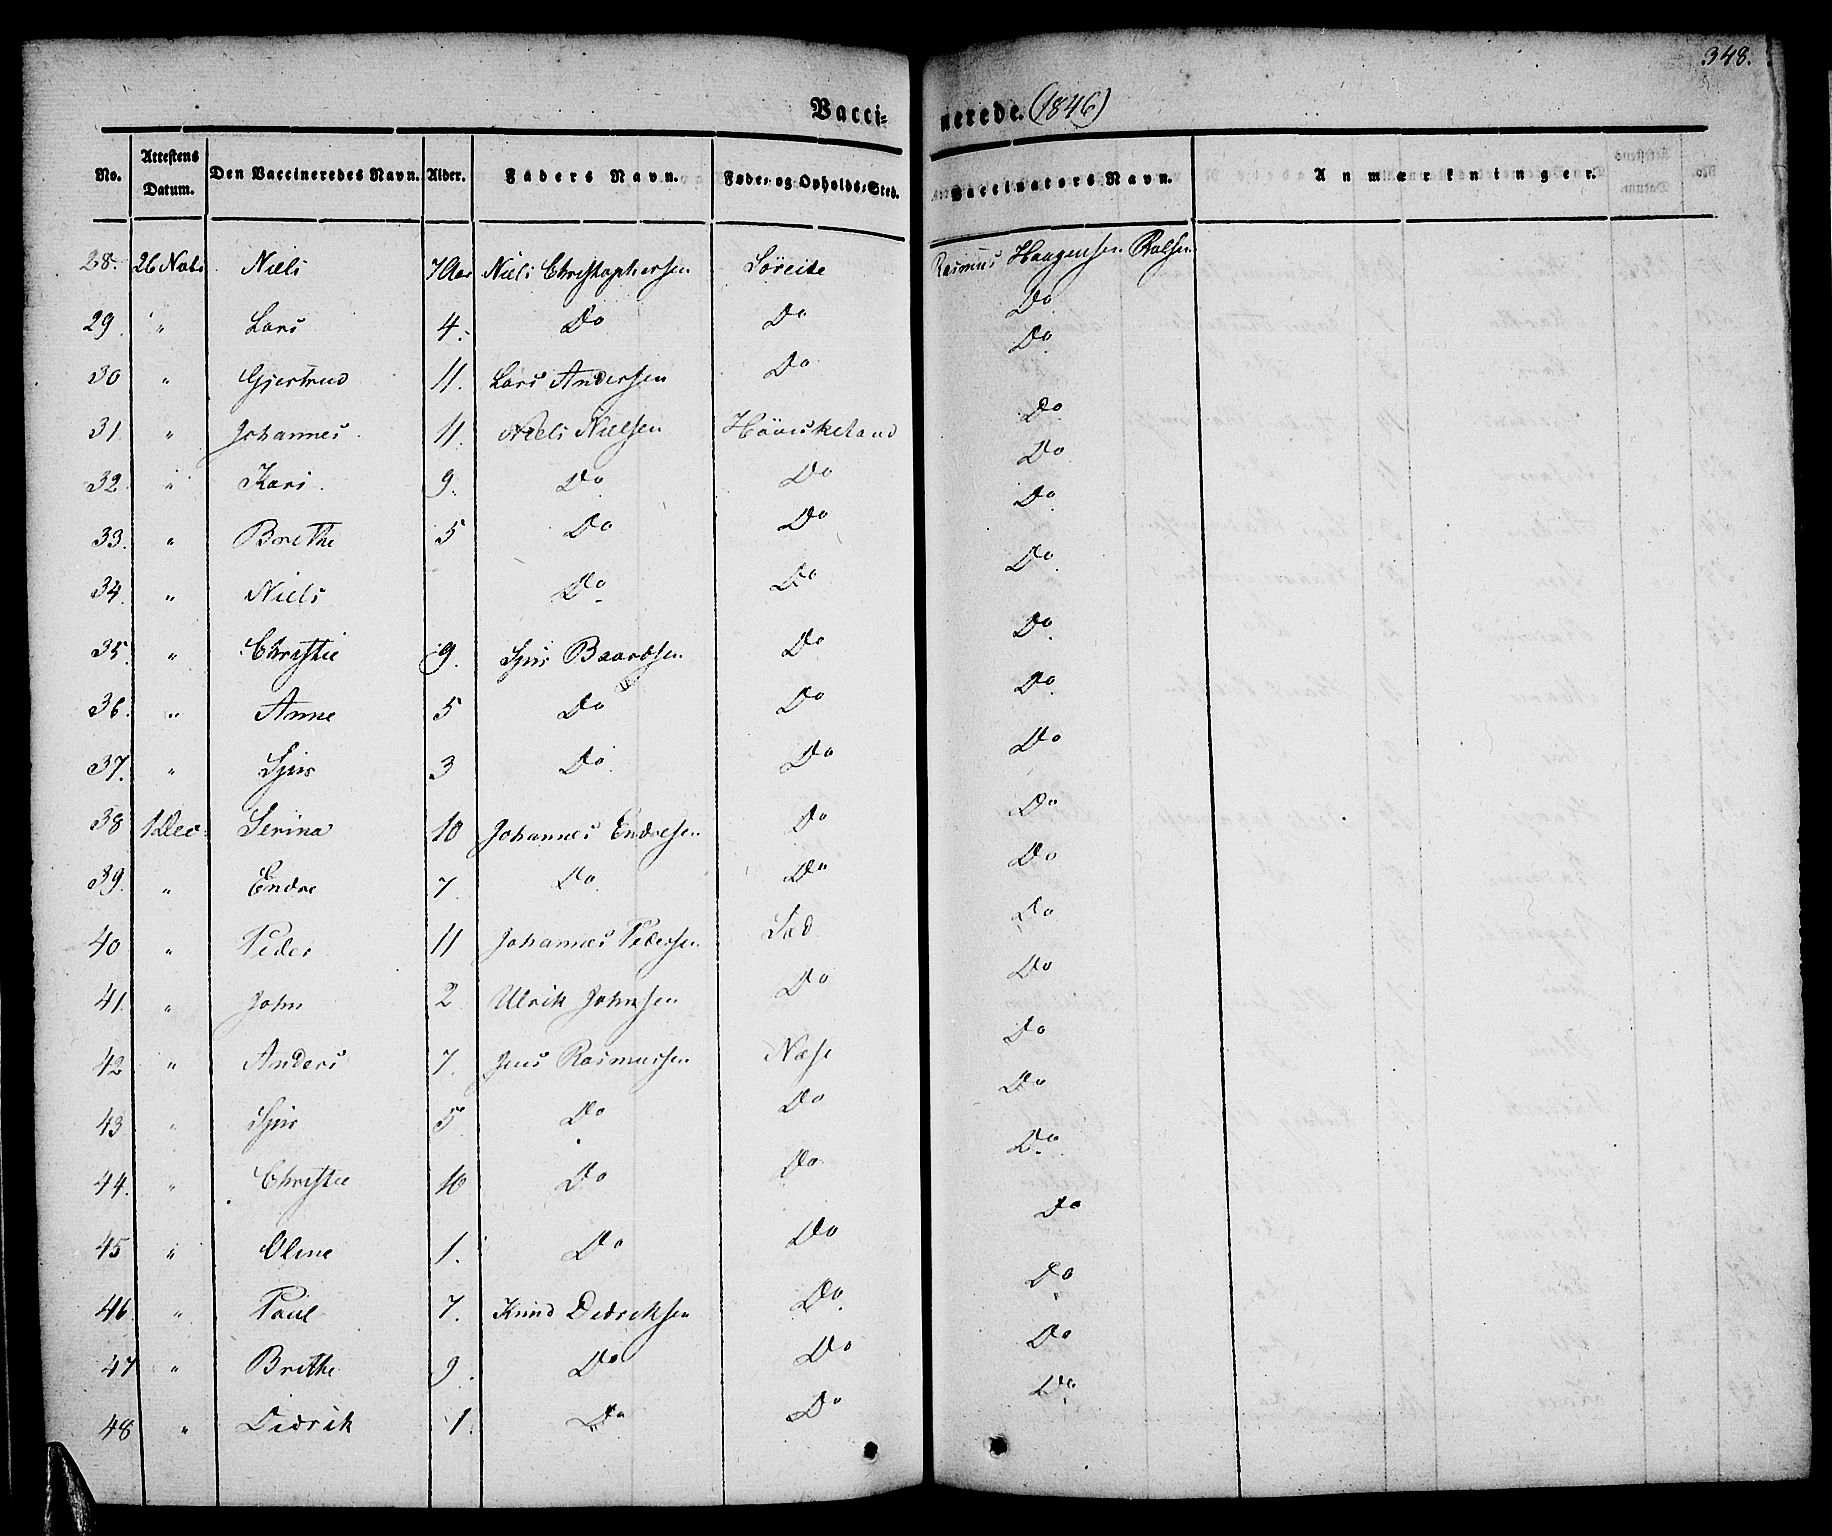 348.
Vaccinerede. (1846)
No. Attestens Datum. Den Vaccineredes Navn. Alder. Faders Navn. Føde- og Opholds-Sted. Vaccinators Navn. Anmærkninger.
28. 26 Novbr Niels 7 Aar Niels Christophersen Søreite Rasmus Haagensen Rolsen
29. " Lars 4. Do Do Do
30 " Gjertrud 11. Lars Andersen Do Do
31 " Johannes. 11. Niels Nielsen Do
32 " Kari. 9. Do Do Do
33. " Brithe 5 Do Do Do
34. " Niels Do Do Do
35. " Christie 9. Sjur Baardsen Do Do
36. " Anne 5 Do Do Do
37. " Sjur 3 Do Do Do
38 1 Dec. Serina 10 Johannes Endresen Do Do
39. " Endre 7. Do Do Do
40 " Peder 11 Johannes Pedersen Sæd Do
41. " John 2 Ulrik Johnsen Do Do
42 " Anders 7. Jens Rasmussen Næse Do
43 " Sjur 5 Do Do Do
44. " Christie 10 Do Do Do
45 " Oline 1. Do Do Do
46. " Paul 7. Knud Didriksen Do Do
47 " Brithe 9. Do Do Do
48 " Didrik 1. Do Do Do